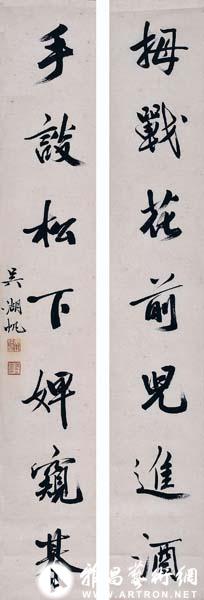 拇戰花前兒進酒
手談松下婢窺棊
吳湖帆
雅昌藝術網
WWW.ARTRON.NET